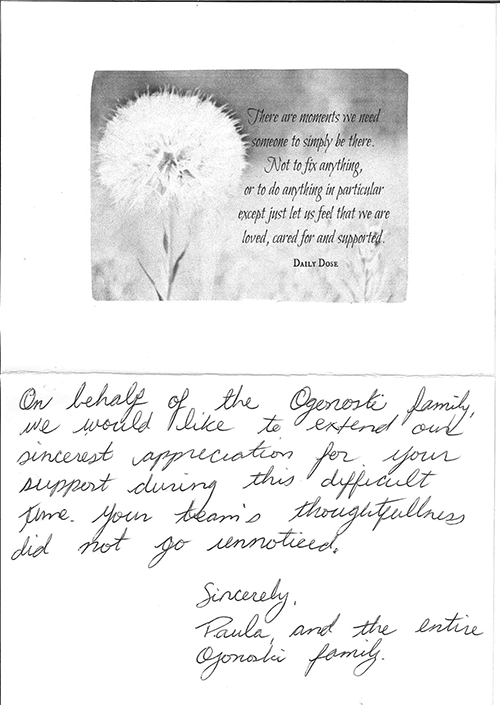 There are moments we need
someone to simply be there.
Not to fix anything,
or to do anything in particular
except just let us feel that we are
loved, cared for and supported.
DAILY DOSE
On behalf of the Ogonoski family,
we would like to extend our
sincerest appreciation for your
support during this difficult
time. Your team's thoughtfullness
did not go unnoticed.
Sincerely,
Paula, and the entire
Ogonoski family.